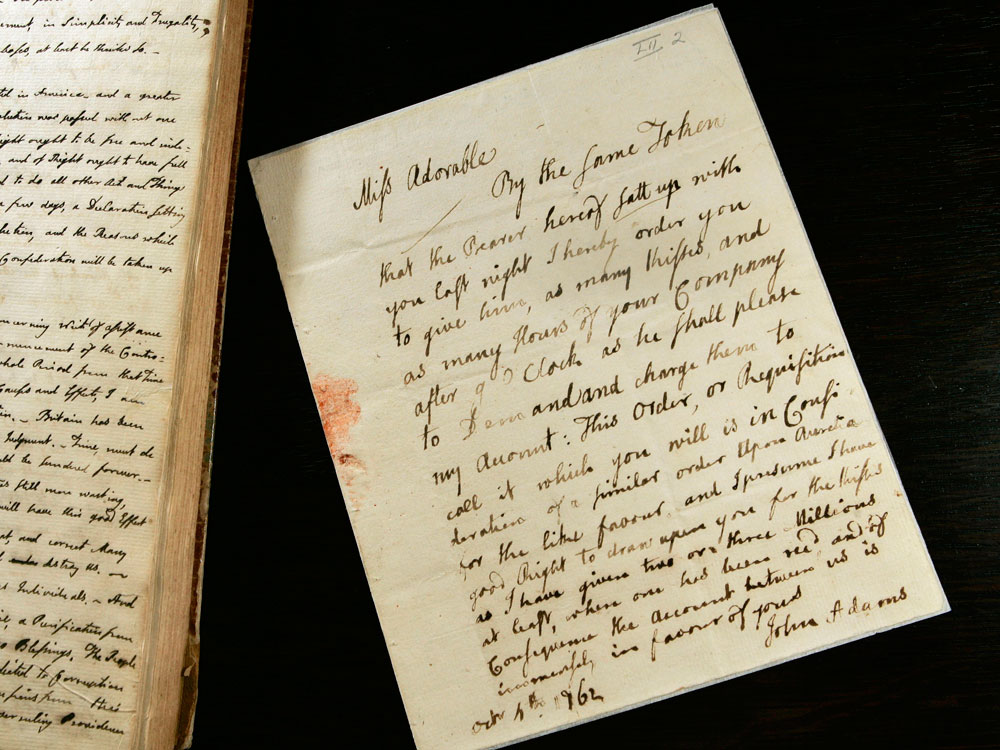 ment, in Simplicity and Frugality,
hopes, at least he thinks so. –
ted in America and a greater
olution was passed without one
Right ought to be free and inde-
and of Right ought to have full
d to do all other Act and Things
a few days, a Declaration setting
lution, and the Reasons which
Confederation will be taken up
oncerning writs of assistance
mencement of the Contro-
whole Period from that Time
Causes and Effects, I am
– Britain has been
Judgment. – Time must de
ld be sundered forever. –
still more wasting,
will have this good Effect
at, and correct Many
destroy Us. –
Individuals. – And
a Purification from
Blessings. The People
dicted to Corruption
from their
overruling Providence
LII 2
Miss Adorable
By the same Token
that the Bearer hereof satt up with
you last night I hereby order you
to give him, as many Kisses, and
as many Hours of your Company
after 9 O Clock as he shall please
to Demand and charge them to
my Account: This Order, or Requisition
call it which you will is in Consi-
deration of a similar order Upon Aurelia
for the like favour, and I presume I have
good Right to draw upon you for the Kisses
as I have given two or three Millions
at least, when one has been recd, and of
Consequence the Account between us is
immensely in favour of yours
John Adams
Octr 4th 1762